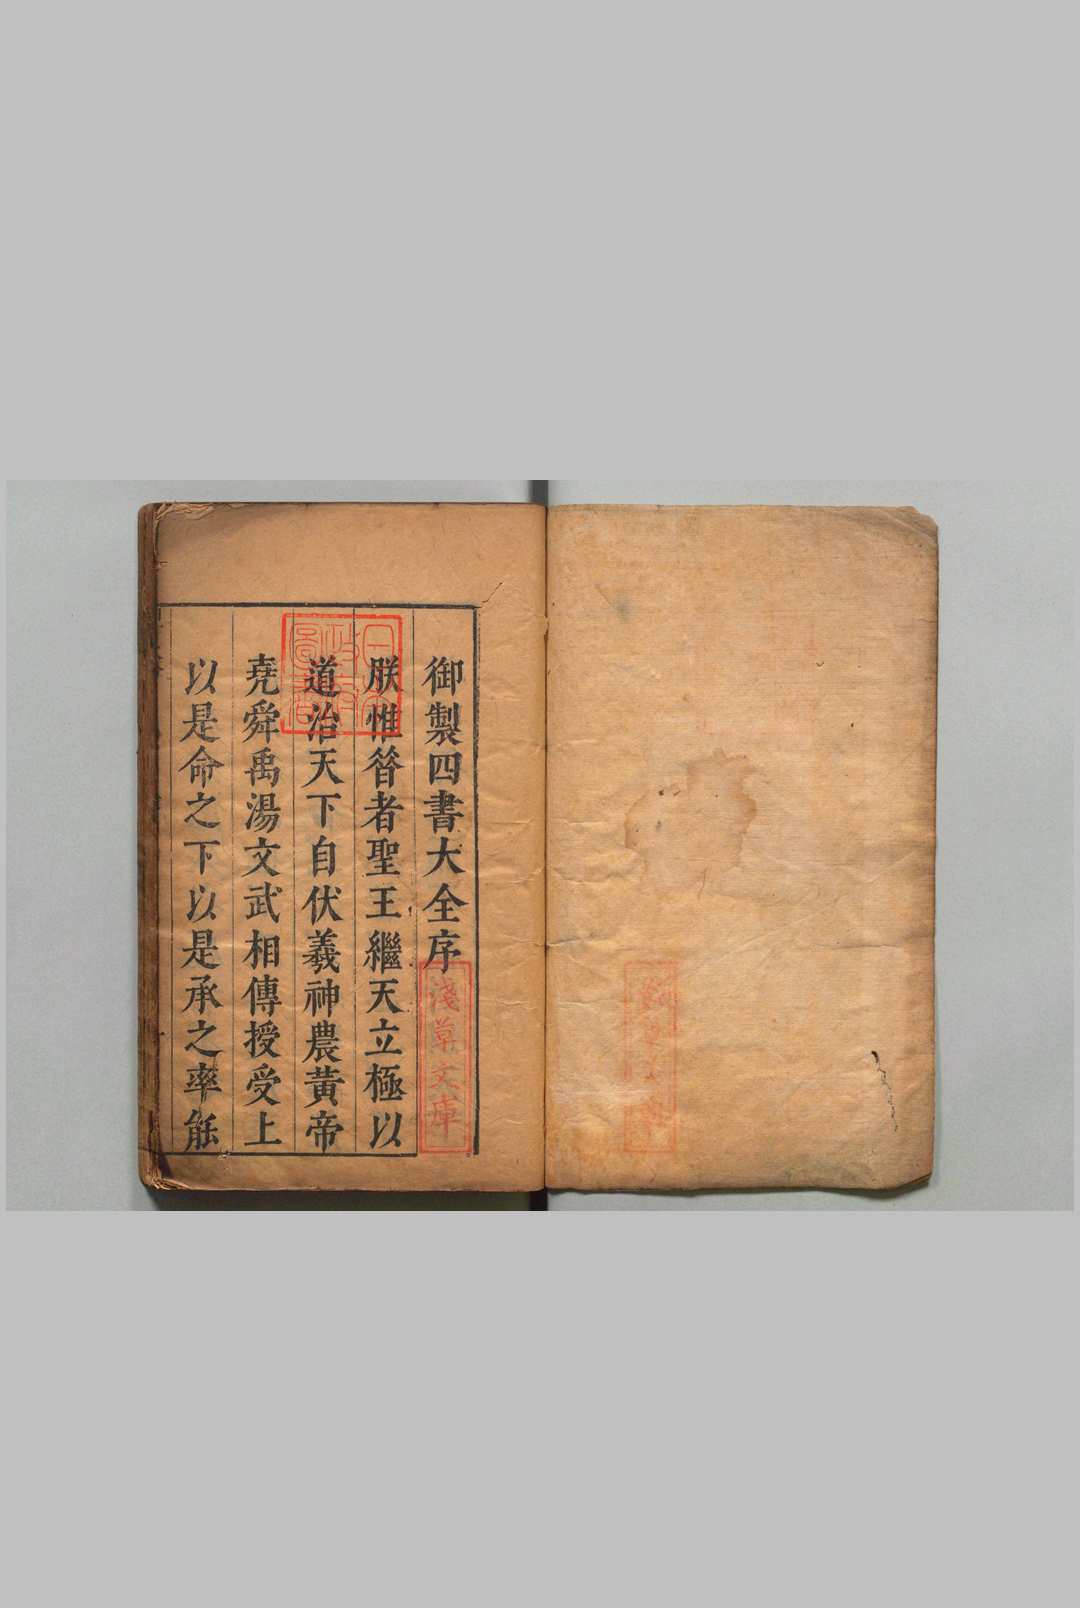 御製四書大全序
朕惟昝者聖王繼天立極以
道治天下自伏羲神農黃帝
堯舜禹湯文武相傳授受上
以是命之下以是承之率能
日本
政府
圖書
淺草文庫